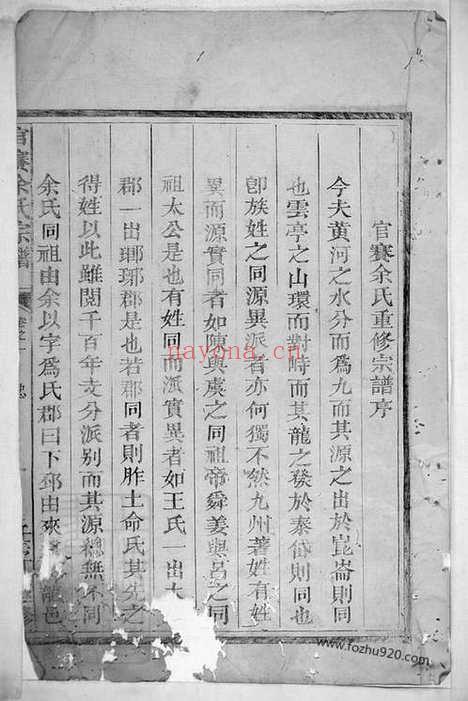 官賽余氏重修宗譜序
今夫黃河之水分而爲九而其源之出於崑崙則同
也雲亭之山環而對時而其龍之發於泰岱則同也
卽族姓之同源異派者亦何獨不然九州著姓有姓
異而源實同者如陳與虞之同祖帝舜姜與呂之同
祖太公是也有姓同而派實異者如王氏一出太
郡一出瑯琊郡是也若郡同者則胙土命氏其先之
得姓以此雖閱千百年支分派別而其源總無不同
余氏同祖由余以字爲氏郡曰下邳由來
邑
官賽余氏宗譜
卷之一
nayona.cn
www.fozhu920.com